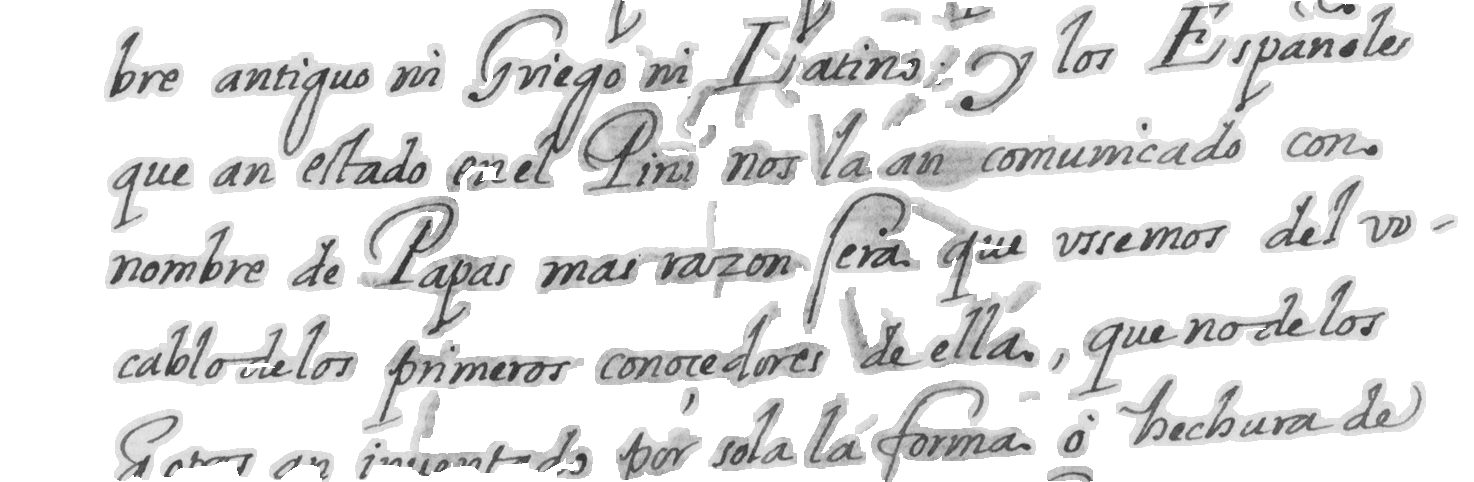 bre antiguo ni Griego ni Latino: y los Españoles
que an estado en el Pirù nos la an comunicado con.
nombre de Papas mas razon sera que vssemos del vo-
cablo de los primeros conocedores de ella, que no de los
q otros an inventado por sola la forma ò hechura de